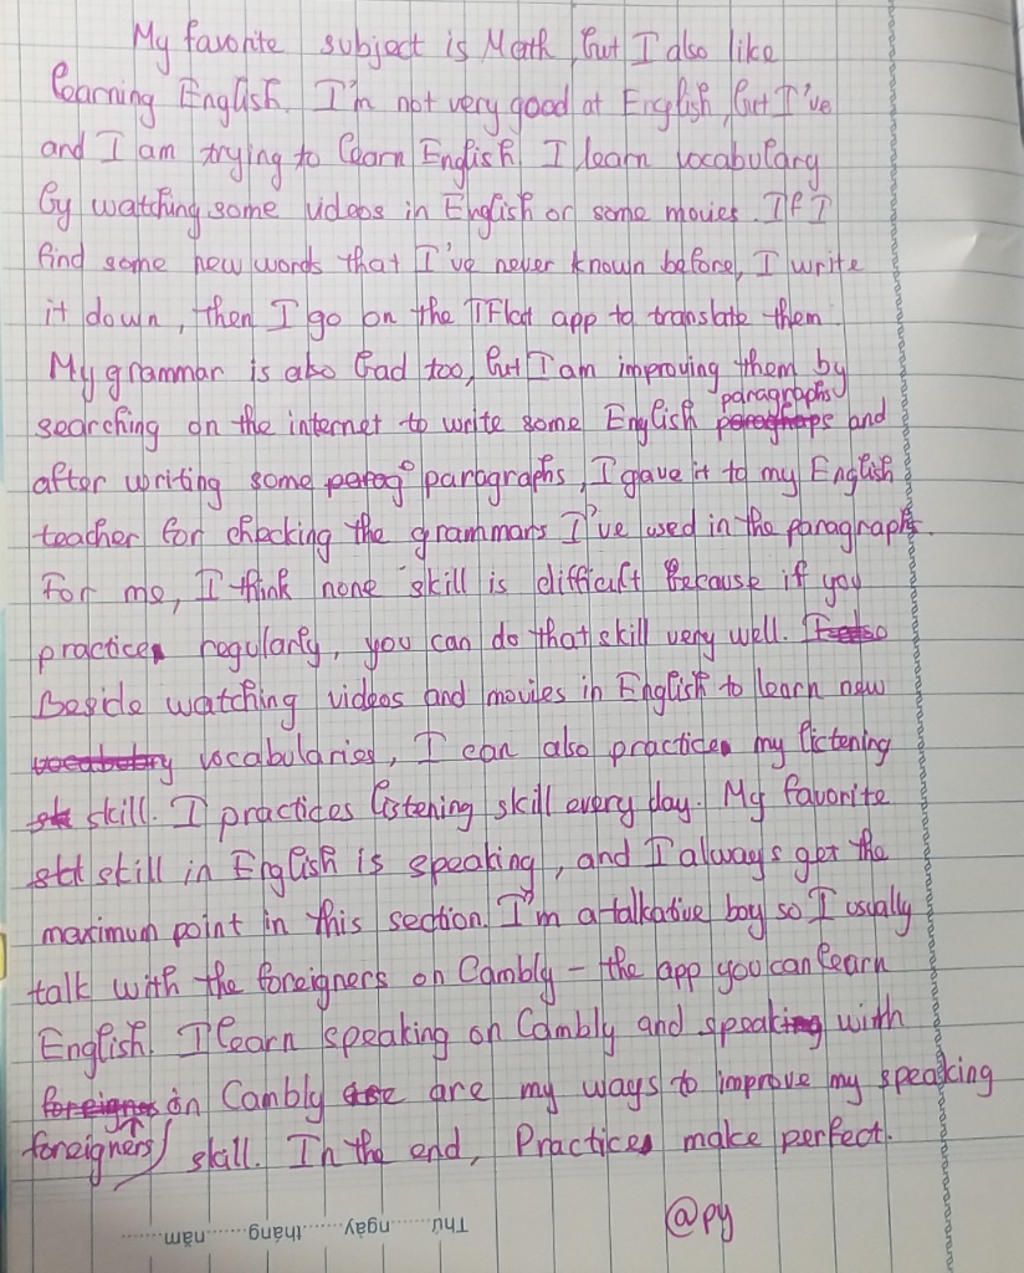 My favorite subject is Math, but I also like
learning English. I'm not very good at English, but I've
and I am trying to learn English. I learn vocabulary
by watching some videos in English or some movies. If I
find some new words that I've never known before, I write
it down, then I go on the TFlat app to translate them.
My grammar is also bad too, but I am improving them by
searching on the internet to write some English paragraphs and
after writing some paragraphs, I gave it to my English
teacher for checking the grammars I've used in the paragraphs.
For me, I think none skill is difficult because if you
practice regularly, you can do that skill very well.
Beside watching videos and movies in English to learn new
vocabularies, I can also practice my listening
skill. I practices listening skill every day. My favorite
skill in English is speaking, and I always get the
maximum point in this section. I'm a talkative boy so I usually
talk with the foreigners on Cambly - the app you can learn
English. I learn speaking on Cambly and speaking with
foreigners on Cambly are my ways to improve my speaking
skill. In the end, Practice make perfect.
@py
Thứ.......ngày.......tháng.......năm.......